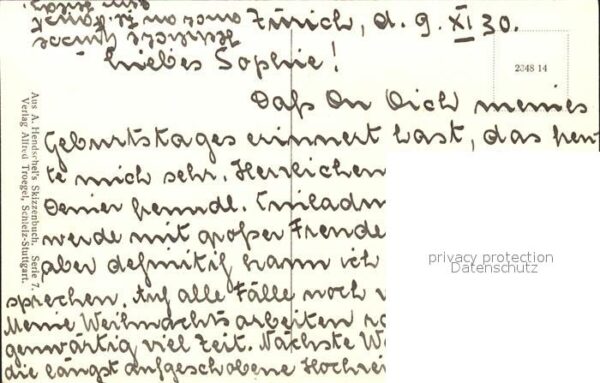 Zürich, d. 9. XI 30.
Liebes Sophie!
2248 14
Daß Du Dich meines
Geburtstages erinnert hast, das freu-
te mich sehr. Herzlichen
Deiner freundl. Einladun
werde mit großer Freude
aber definitif kann ich
sprechen. Auf alle Fälle noch
Meine Weihnachtsarbeiten
genwärtig viel Zeit. Nächste
die längst aufgeschobene Hochzei
Aus A. Hendschel's Skizzenbuch. Serie 7.
Verlag Alfred Troegel, Schleiz-Stuttgart.
privacy protection
Datenschutz